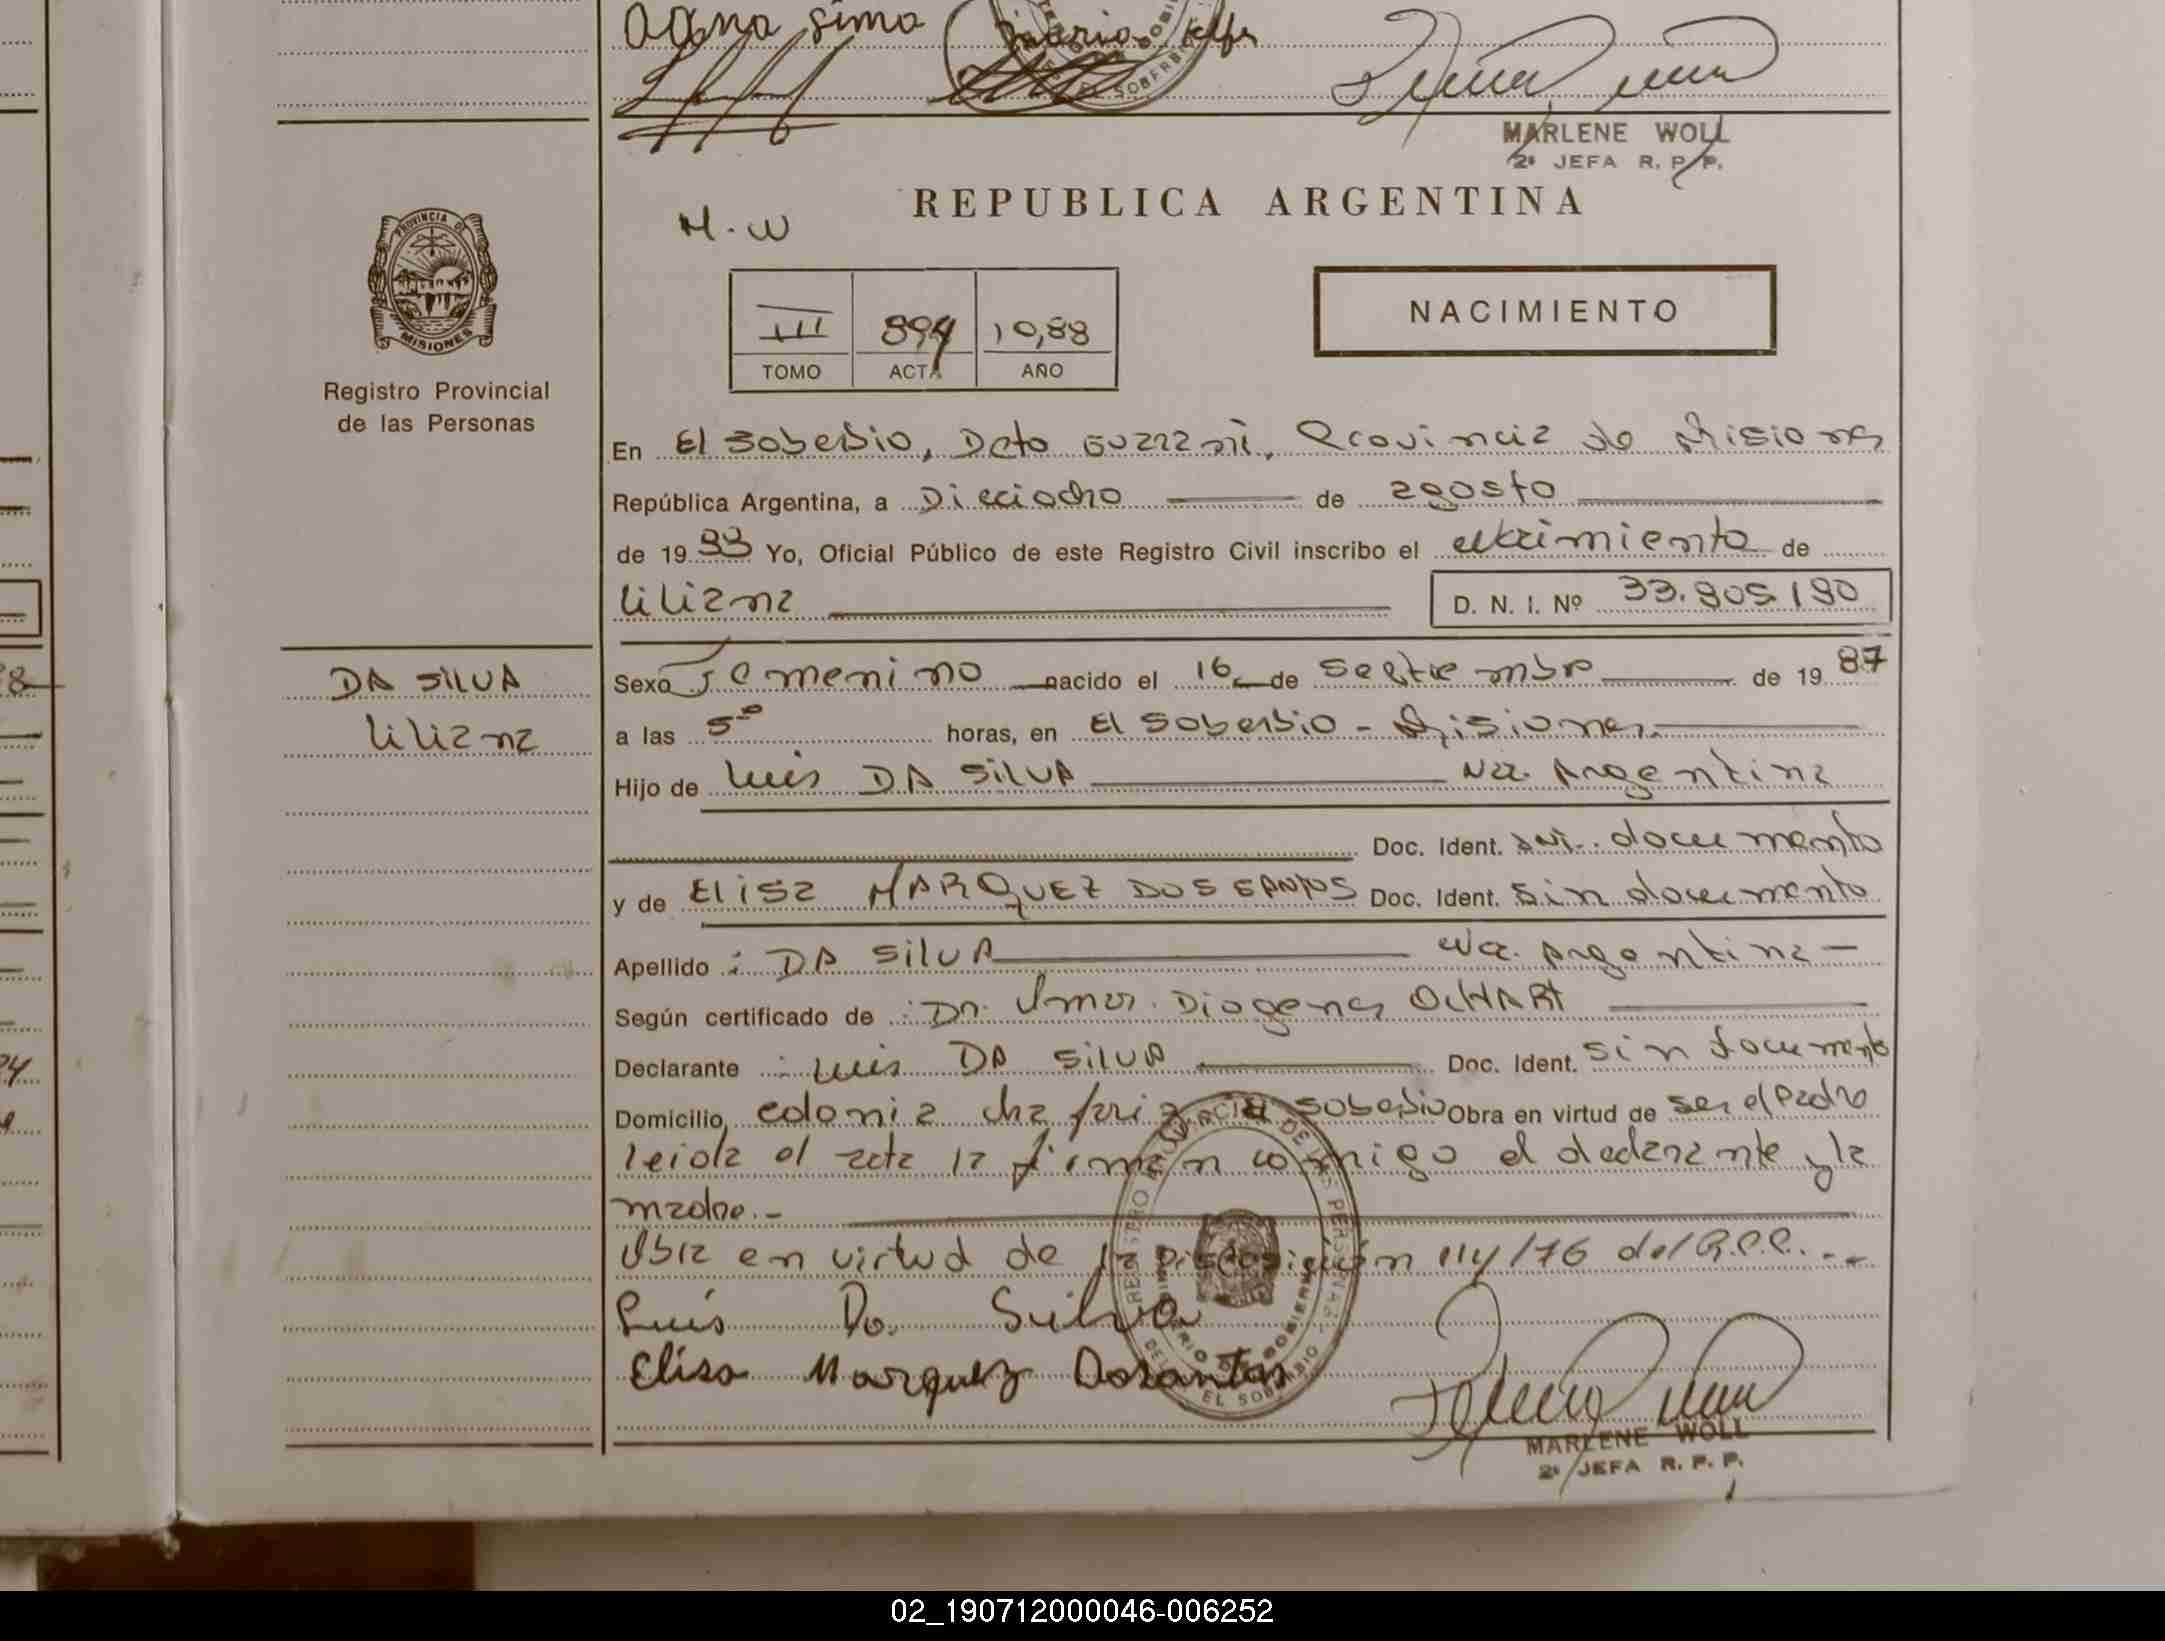 MARLENE WOLL
2ª JEFA R. P. P.
REPUBLICA ARGENTINA
M.W
PROVINCIA DE
MISIONES
Registro Provincial
de las Personas
III 894
TOMO ACTA AÑO
NACIMIENTO
En El Soberbio, Dcto Guarani, Provincia de Misiones
República Argentina, a Dieciocho de agosto
de 19 88 Yo, Oficial Público de este Registro Civil inscribo el Nacimiento de
Liliana D. N. I. Nº 33.905.190
DA SILVA
Liliana
Sexo Femenino nacido el 16 de Septiembre de 19 87
a las 5º horas, en El Soberbio - Misiones.
Hijo de Luis DA SILVA Na. Argentina
Doc. Ident. documento
y de Elisa MARQUEZ DOS SANTOS Doc. Ident. sin documento
Apellido : DA SILVA Na. Argentina -
Según certificado de : Dr. Omar Diogenes
Declarante : Luis DA SILVA Doc. Ident. sin documento
Domicilio, colonia El Soberbio Obra en virtud de ser el Padre
leida el acta la firman conmigo el declarante y la
madre.-
Obra en virtud de la Disposición 114/76 del R.P.P.
Luis Da Silva
Elisa Marquez Dosantos
REGISTRO PROVINCIAL DE LAS PERSONAS
MINISTERIO DE GOBIERNO
EL SOBERBIO
MARLENE WOLL
2ª JEFA R. P. P.
02_190712000046-006252